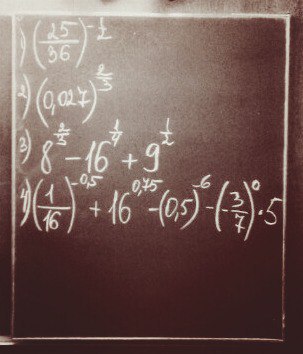 1) (25/36)^(-1/2)
2) (0,027)^(2/3)
3) 8^(2/3) - 16^(1/4) + 9^(1/2)
4) (1/16)^(-0,5) + 16^(0,75) - (0,5)^(-6) - (-3/7)^0 · 5